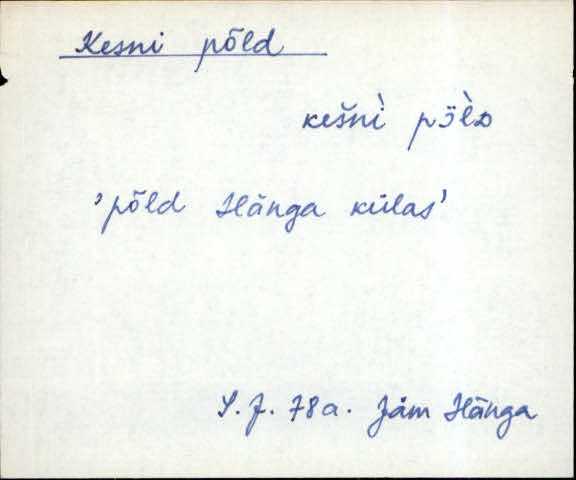 Kesni põld
kešnì pɔ̈̀lᴅ
'põld Hänga külas'
S. J. 78a. Jäm Hänga